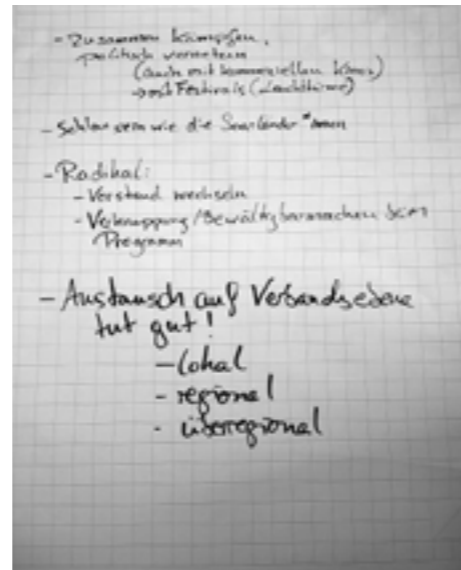 - Zusammen kämpfen,
politisch vernetzen
(auch mit kommerziellen Kinos)
→ mit Festivals (Leuchttürme)
- Schlau sein wie die Saarländer*innen
- Radikal:
- Vorstand wechseln
- Verknappung / Bewältigbarmachen beim
Programm
- Austausch auf Verbandsebene
tut gut!
- lokal
- regional
- überregional